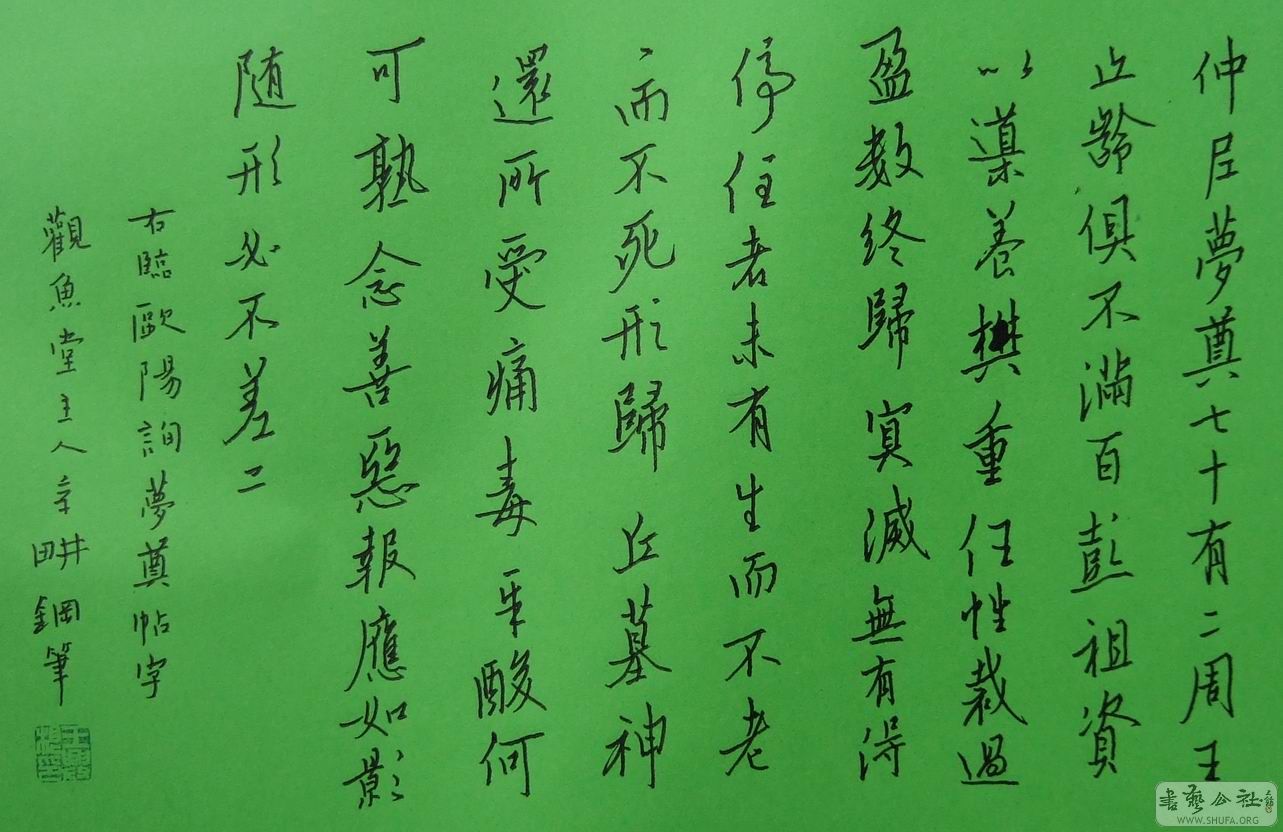 仲尼夢奠七十有二周王
九齡俱不滿百彭祖資
以導養樊重任性裁過
盈數終歸冥滅無有得
停住者未有生而不老
々而不死形歸丘墓神
還所受痛毒辛酸何
可熟念善惡報應如影
随形必不差二
右臨歐陽詢夢奠帖字
觀魚堂主人辛畊鋼筆
書藝公社
WWW.SHUFA.ORG